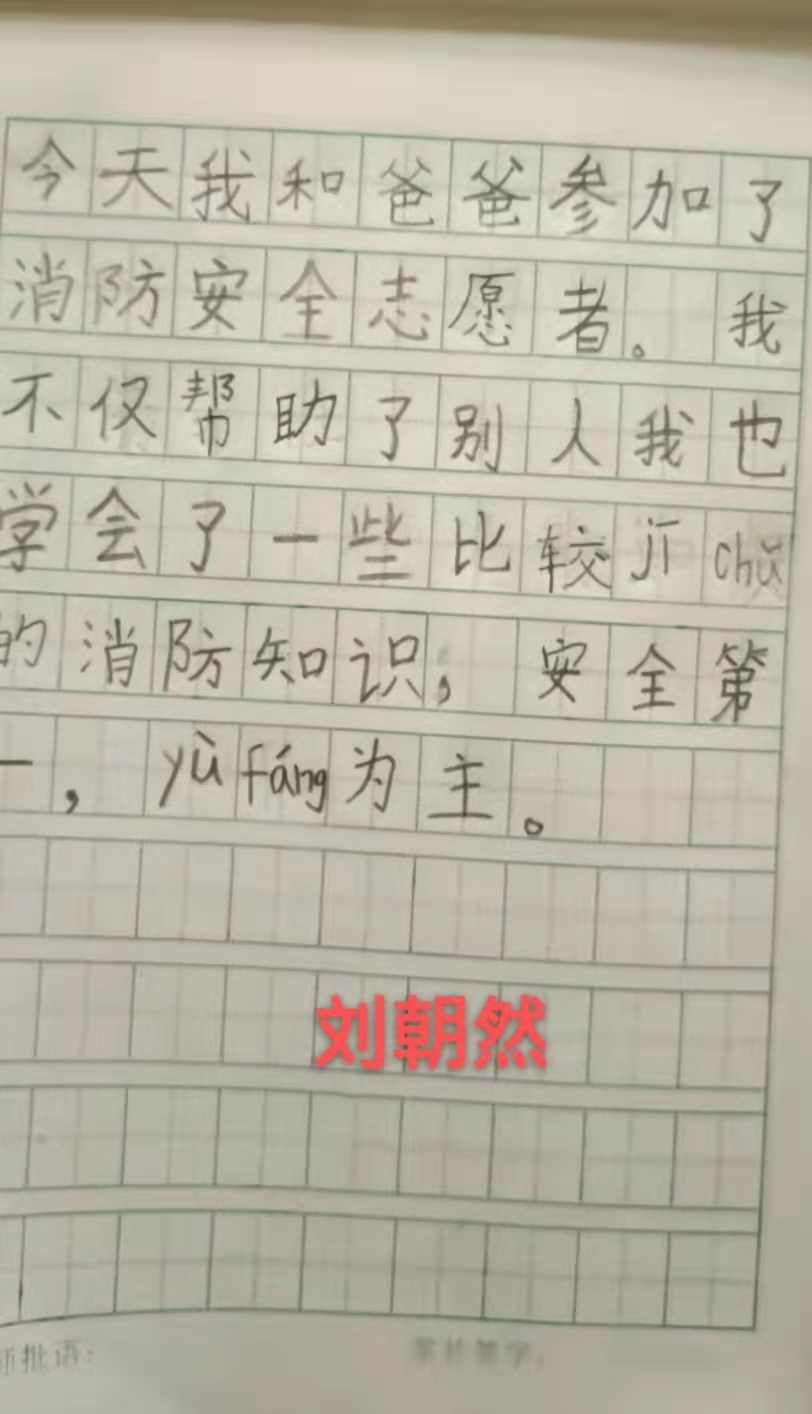 今天我和爸爸参加了
消防安全志愿者。我
不仅帮助了别人我也
学会了一些比较jī chǔ
的消防知识，安全第
一，yù fáng为主。
刘朝然
师批语：
家长签字：